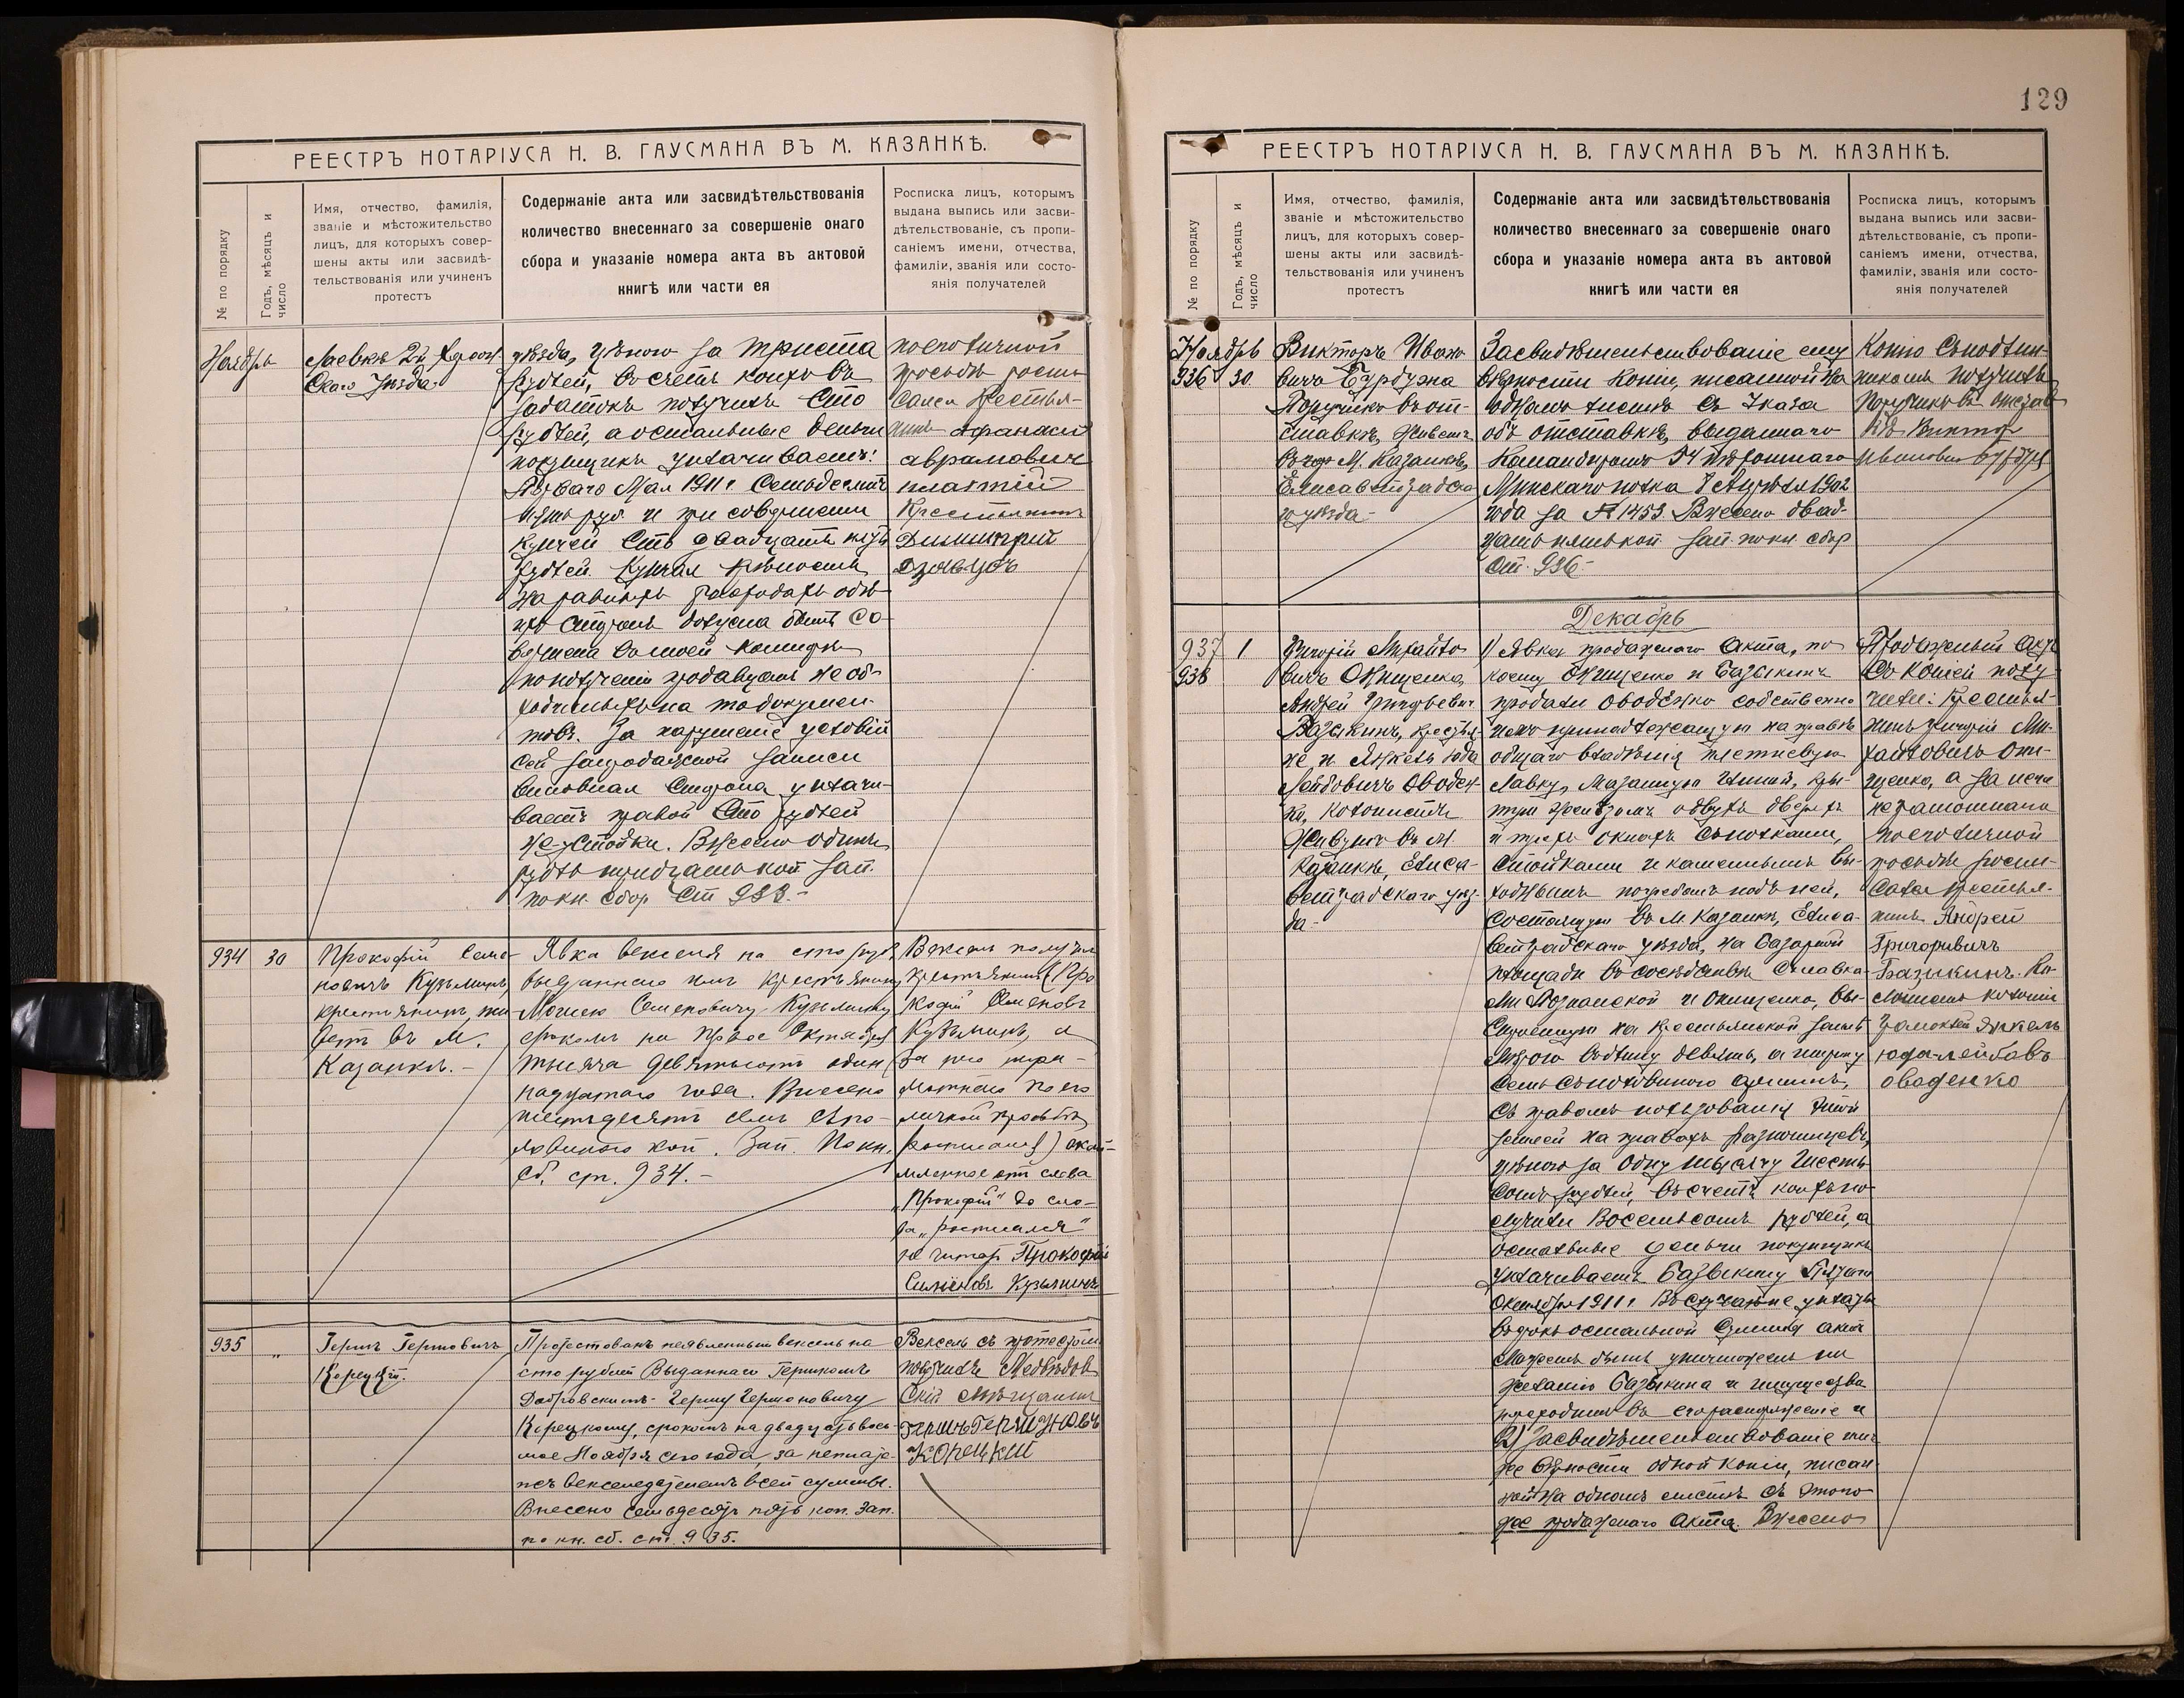 129
РЕЕСТРЪ НОТАРІУСА Н. В. ГАУСМАНА ВЪ М. КАЗАНКѢ.
№ по порядку
Годъ, мѣсяцъ и
число
Имя, отчество, фамилія,
званіе и мѣстожительство
лицъ, для которыхъ совер-
шены акты или засвидѣ-
тельствованія или учиненъ
протестъ
Содержаніе акта или засвидѣтельствованія
количество внесеннаго за совершеніе онаго
сбора и указаніе номера акта въ актовой
книгѣ или части ея
Росписка лицъ, которымъ
выдана выпись или засви-
дѣтельствованіе, съ пропи-
саніемъ имени, отчества,
фамиліи, званія или состо-
янія получателей
Ноябрь
Лаевкѣ 2й Херсон
скаго уѣзда
уѣзда, цѣною за триста
рублей, въ счетъ коихъ въ
задатокъ получилъ сто
рублей, а остальные деньги
покупщикъ уплачиваетъ:
Перваго Мая 1911 г. семьдесятъ
пять руб. и при совершеніи
купчей сто двадцать пять
рублей. Купчая крѣпость
на равныхъ расходахъ обѣ-
ихъ сторонъ должна быть со-
вершена въ моей конторѣ
по полученіи продавцами необ-
ходимыхъ на то докумен-
товъ. За нарушеніе условій
сей запродажной записи
виновная сторона уплачи-
ваетъ правой сто рублей
не-устойки. Внесено одинъ
рубль тридцать коп. Зап.
по кн. сбор ст 933.-
по его личной
просьбѣ роспи-
сался крестья-
нинъ Афанасій
аврамович
платній
Крестьянинъ
Димитрій
934 30
Прокофій Семе-
новичъ Кузьминъ,
крестьянинъ, жи
ветъ въ М.
Казанкѣ.-
Явка векселя на сто руб.
выданнаго имъ крестьянину
Моисею Семеновичу Кузьмину
срокомъ на Првое Октября
тысяча девятьсотъ один
надцатаго года. Внесено
шестьдесятъ семь съ по-
ловиною коп. Зап. По кн.
Сб. ст. 934.-
Вексель получил
крестьянинъ (Про
кофій Семеновъ
Кузьминъ, а
за него негра-
мотнаго по его
личной просьбѣ
росписался) окай-
мленное отъ слова
„Прокофій" до сло-
ва „росписался"
не читар. Прокофій
Симіновъ Кузьминъ
935 „
Гершъ Гершовичъ
Корецкій.
Протестованъ неявленный вексель на
сто рублей выданнаго Гершкомъ
Добровскимъ Гершу Гершоновичу
Корецкому, срокомъ на двадцать вось-
мое Ноября сего года, за неплаже-
пъ векселедателемъ всей суммы.
Внесено семьдесятъ пять коп. Зап.
по кн. сб. ст. 935.
Вексель съ протестомъ
получилъ Медвѣдов
скій мѣщанинъ
гершъ гершоновъ
корецкій
РЕЕСТРЪ НОТАРІУСА Н. В. ГАУСМАНА ВЪ М. КАЗАНКѢ.
№ по порядку
Годъ, мѣсяцъ и
число
Имя, отчество, фамилія,
званіе и мѣстожительство
лицъ, для которыхъ совер-
шены акты или засвидѣ-
тельствованія или учиненъ
протестъ
Содержаніе акта или засвидѣтельствованія
количество внесеннаго за совершеніе онаго
сбора и указаніе номера акта въ актовой
книгѣ или части ея
Росписка лицъ, которымъ
выдана выпись или засви-
дѣтельствованіе, съ пропи-
саніемъ имени, отчества,
фамиліи, званія или состо-
янія получателей
Ноябрь
936 30
Викторъ Ивано
вичъ
Поручикъ въ от-
ставкѣ, живетъ
въ М. Казанкѣ,
Елисаветградска
го уѣзда-
Засвидѣтельствованіе ему
вѣрности копіи, писанной на
одномъ листѣ съ Указа
объ отставкѣ, выданнаго
Командиромъ 54 пѣхотнаго
Минскаго полка 8 Апрѣля 1902
года за № 1453. Внесено двад-
цать пять коп. Зап. по кн. сбор
ст. 936.-
Копію съ подлин-
никомъ получилъ
Поручикъ въ отстав
кѣ Виктор
Ивановичъ
Декабрь
937 1
938
Григорій Михайло
вичъ Онищенко,
Андрей Григорьевич
Базыкинъ, крестья
не и Янкель Юда
Лейбовичъ Оводен
ко, колонистъ
живутъ въ М.
Казанкѣ, Елиса-
ветградскаго уѣз-
да-
1) Явка продажнаго акта, по
коему Онищенко и Базыкинъ
продали Оводенко собственно
имъ принадлежащую на правѣ
общаго владѣнія плетневую
лавку, мазанную глиной, кры-
тую желѣзомъ о двухъ дверяхъ
и трехъ окнахъ съ полками,
стойками и каменнымъ вы-
ходнымъ погребомъ подъ ней,
состоящую въ М. Казанкѣ, Елиса-
ветградскаго уѣзда, на базарной
площади въ сосѣдствѣ съ лавка-
ми Познанской и Онищенко, вы-
строенную на крестьянской землѣ
мѣрою въ длину девять, а ширину
семь съ половиною аршинъ,
съ правомъ пользованія этой
землей на правахъ разночинцевъ,
цѣною за одну тысячу шесть-
сотъ рублей, въ счетъ коихъ по-
лучили восемьсотъ рублей, а
остальные деньги покупщикъ
уплачиваетъ Базыкину Перваго
Октября 1911 г. Въ случаѣ неуплаты
въ срокъ остальной суммы актъ
можетъ быть уничтоженъ по
желанію Базыкина и имущество
переходитъ въ его распоряженіе и
2) Засвидѣтельствованіе имъ
же вѣрности одной копіи, писан
ной на одномъ листѣ съ этого
же продажнаго акта. Внесено
Продажный актъ
съ копіей полу
чили: крестья-
нинъ Григорій Ми-
хайловичъ Они-
щенко, а за него
неграмотнаго
по его личной
просьбѣ роспи-
сался крестья-
нинъ Андрей
Григоривичъ
Базикинъ. Ко-
янкель
юда-лейбовъ
оводенко